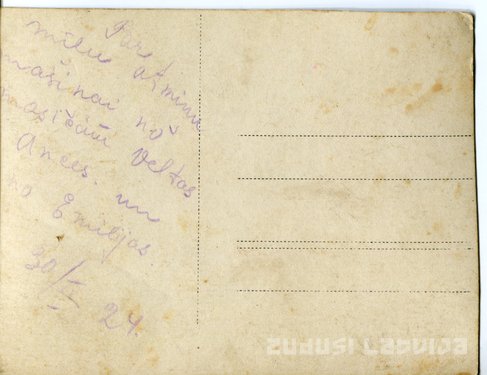 Par
mīļu atmiņu
māsiņai no
māsiņām Veltas
Annes. un
no Emilijas.
30/X 24.
ZUDUSĪ LATVIJA